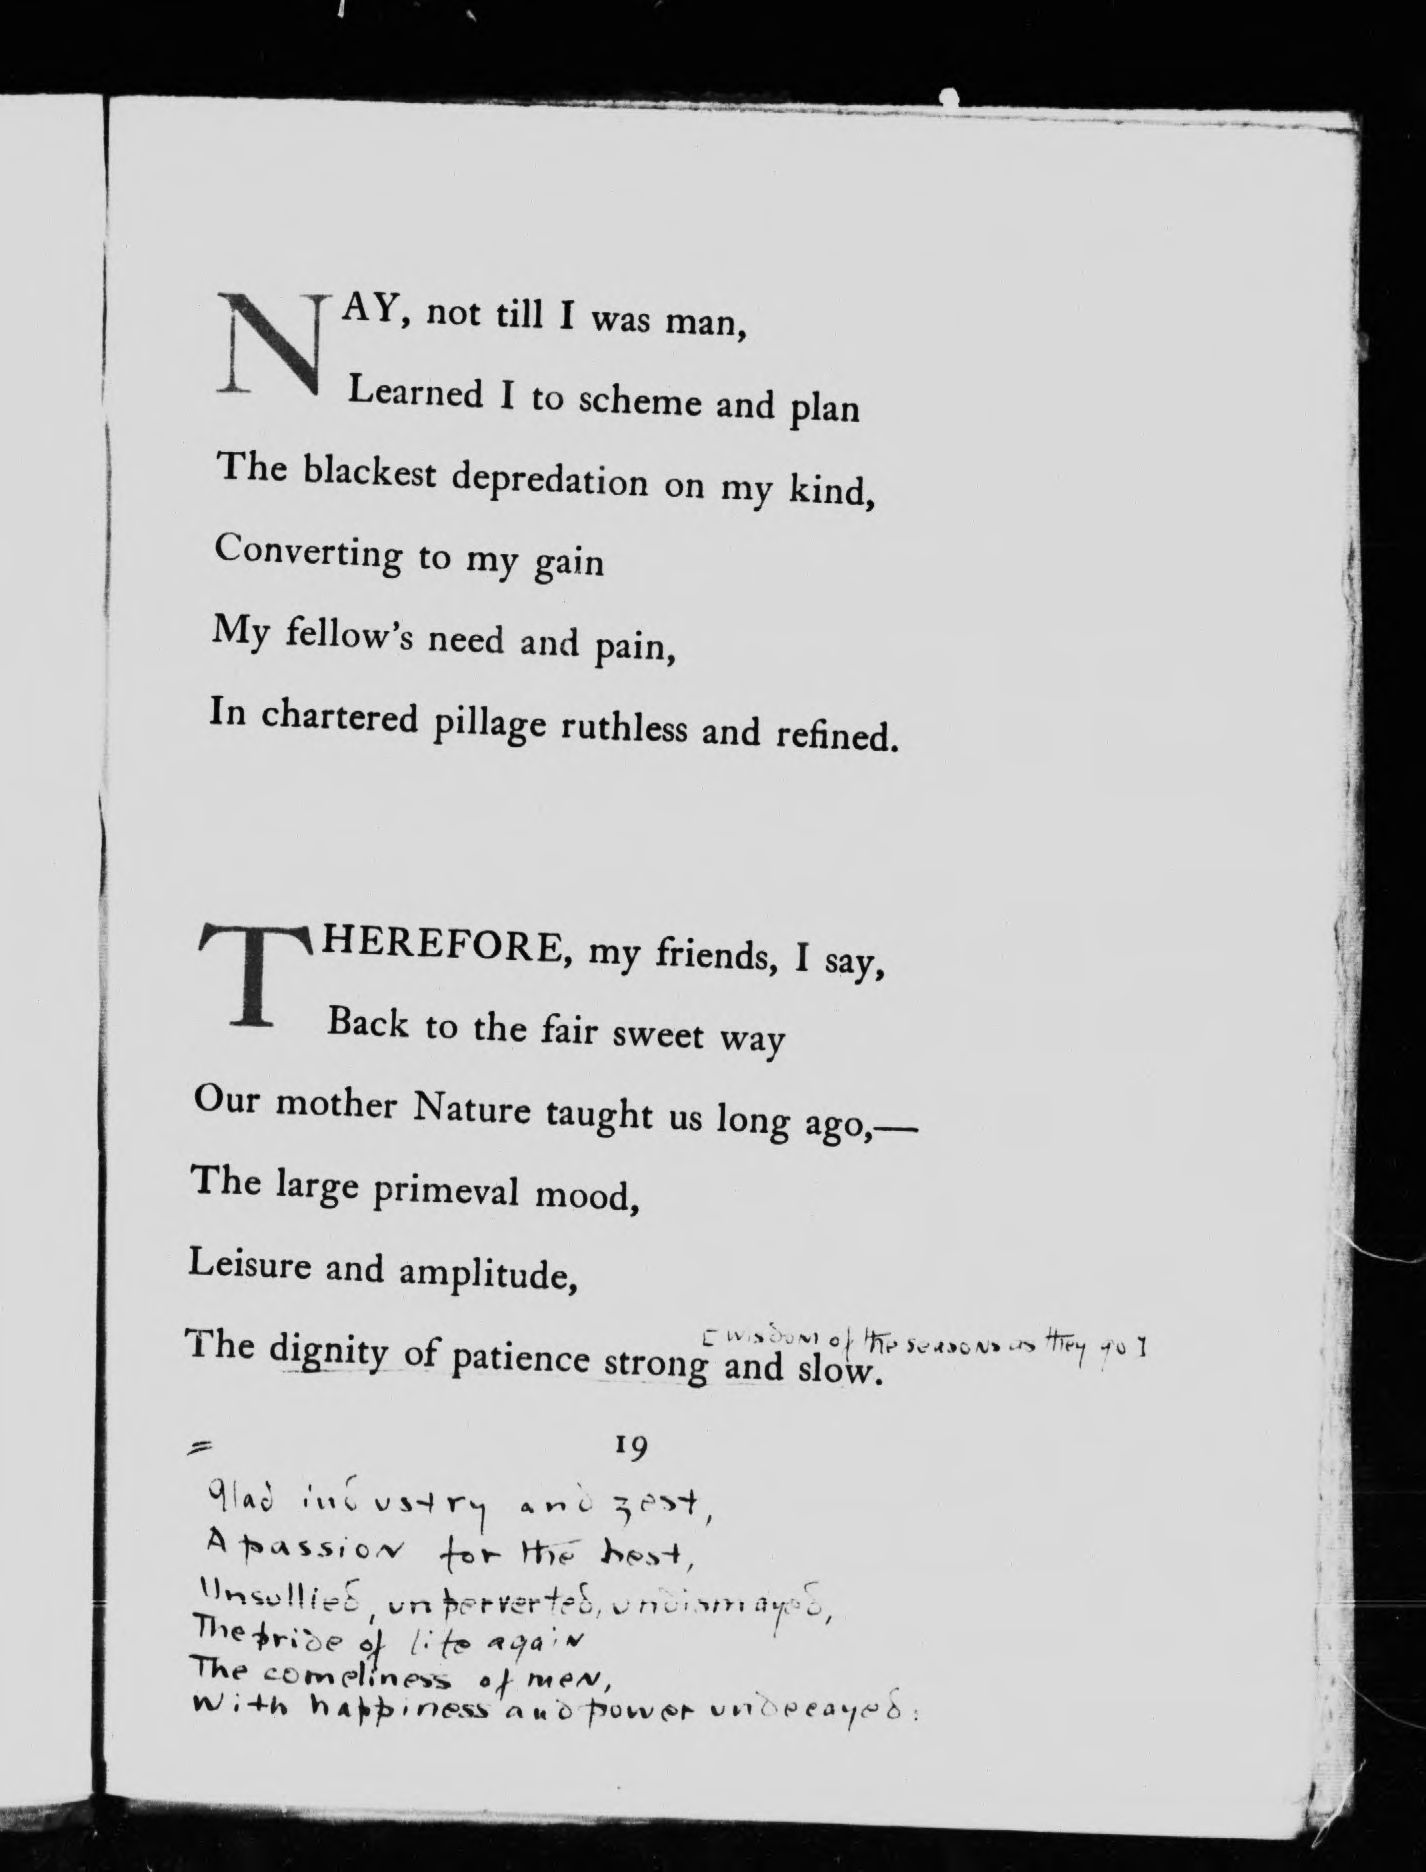 NAY, not till I was man,
Learned I to scheme and plan
The blackest depredation on my kind,
Converting to my gain
My fellow's need and pain,
In chartered pillage ruthless and refined.
THEREFORE, my friends, I say,
Back to the fair sweet way
Our mother Nature taught us long ago,—
The large primeval mood,
Leisure and amplitude,
[wisdom of the seasons as they go]
The dignity of patience strong and slow.
= 19
Glad industry and zest,
A passion for the best,
Unsullied, unperverted, undismayed,
The pride of life again
The comeliness of men,
With happiness and power undecayed: